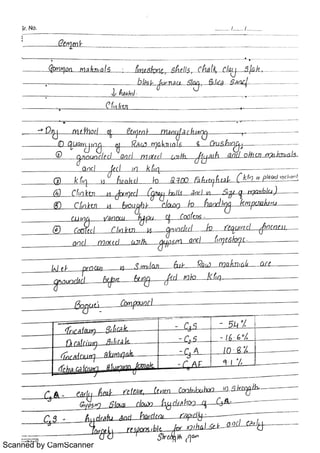 Sr. No.
Cement
Common materials : limestone, shells, chalk, clay, slate,
blast furnace slag, silica sand
↓ heated
Clinker
→ Dry method of cement manufacturing
① Quarrying of Raw materials & Crushing
② grounded and mixed with flyash and other materials
and fed in kiln
③ kiln is heated to 2700 Fahrenheit (kiln is placed
④ Clinker is formed (gray balls and in size of marbles)
⑤ Clinker is brought down to handling temperature
using various types of Coolers
⑥ Cooled Clinker is grinded to required fineness
and mixed with gypsum and limestone
Wet process is similar but Raw materials are
grounded before being fed into kiln.
Bogue's Compound
Tricalcium Silicate - C₃S - 54%
Dicalcium Silicate - C₂S - 16.6%
Tricalcium Aluminate - C₃A 10.8%
Tetra calcium Alumino ferrate - C₄AF 9.1%
C₃A - early heat release, Contribution in Strength
Gypsum Slow down hydration of C₃A.
C₃S - hydrates and hardens rapidly.
largely responsible for initial set and early
Strength gain
Scanned by CamScanner